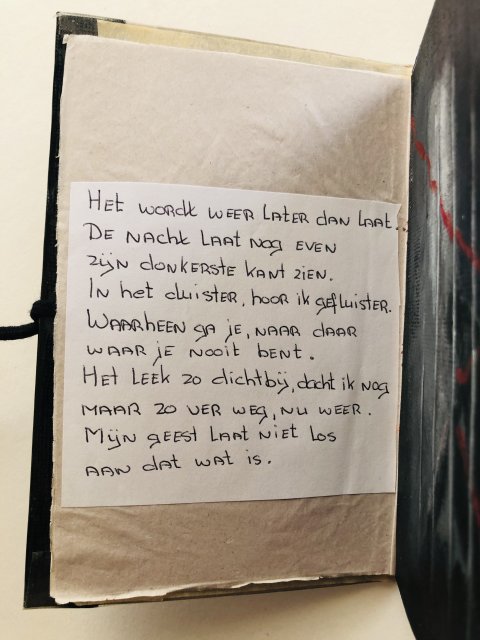 Het wordt weer later dan laat...
De nacht laat nog even
zijn donkerste kant zien.
In het duister, hoor ik gefluister.
Waarheen ga je, naar daar
waar je nooit bent.
Het leek zo dichtbij, dacht ik nog
maar zo ver weg, nu weer.
Mijn geest laat niet los
aan dat wat is.